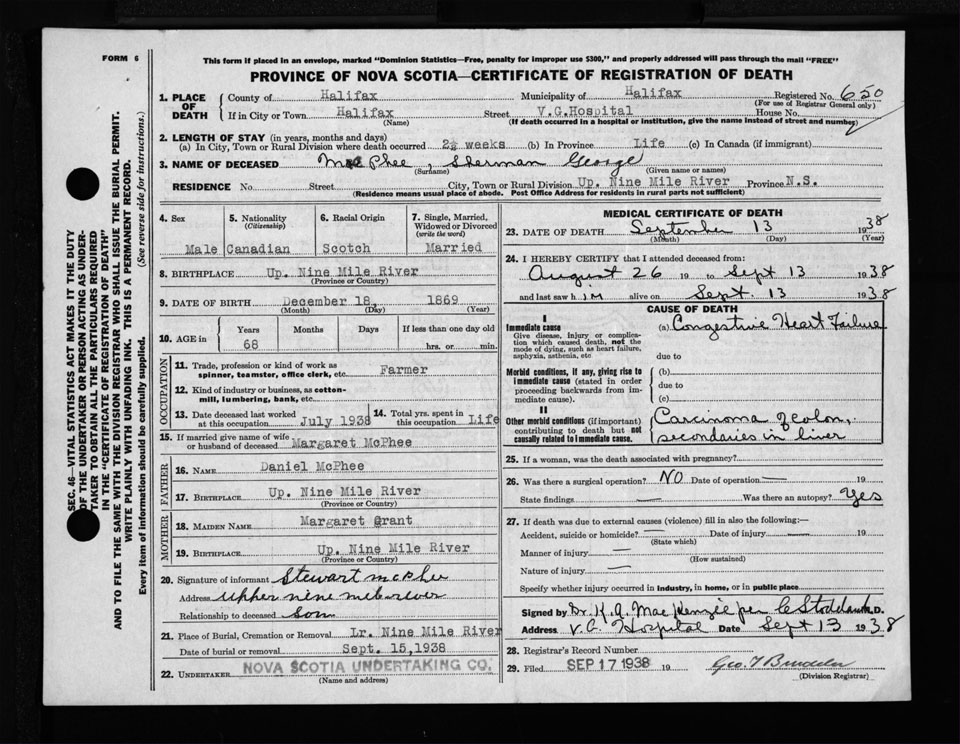 FORM 6
This form if placed in an envelope, marked "Dominion Statistics—Free, penalty for improper use $300," and properly addressed will pass through the mail "FREE"
PROVINCE OF NOVA SCOTIA—CERTIFICATE OF REGISTRATION OF DEATH
SEC. 46—VITAL STATISTICS ACT MAKES IT THE DUTY
OF THE UNDERTAKER OR PERSON ACTING AS UNDER-
TAKER TO OBTAIN ALL THE PARTICULARS REQUIRED
IN THE "CERTIFICATE OF REGISTRATION OF DEATH"
AND TO FILE THE SAME WITH THE DIVISION REGISTRAR WHO SHALL ISSUE THE BURIAL PERMIT.
WRITE PLAINLY WITH UNFADING INK. THIS IS A PERMANENT RECORD.
Every item of information should be carefully supplied. (See reverse side for instructions.)
1. PLACE OF DEATH County of Halifax Municipality of Halifax Registered No. 650
(For use of Registrar General only)
If in City or Town Halifax Street V.G.Hospital House No.
(Name) (If death occurred in a hospital or institution, give the name instead of street and number)
2. LENGTH OF STAY (in years, months and days)
(a) In City, Town or Rural Division where death occurred 2½ weeks (b) In Province Life (c) In Canada (if immigrant)
3. NAME OF DECEASED MacPhee, Sherman George
(Surname) (Given name or names)
RESIDENCE No. Street City, Town or Rural Division Up. Nine Mile River Province N.S.
(Residence means usual place of abode. Post Office Address for residents in rural parts not sufficient)
4. Sex 5. Nationality (Citizenship) 6. Racial Origin 7. Single, Married, Widowed or Divorced (write the word)
Male Canadian Scotch Married
8. BIRTHPLACE Up. Nine Mile River
(Province or Country)
9. DATE OF BIRTH December 18, 1869
(Month) (Day) (Year)
10. AGE in Years Months Days If less than one day old
68 hrs. or min.
OCCUPATION
11. Trade, profession or kind of work as spinner, teamster, office clerk, etc. Farmer
12. Kind of industry or business, as cotton-mill, lumbering, bank, etc.
13. Date deceased last worked at this occupation July 1938 14. Total yrs. spent in this occupation Life
15. If married give name of wife or husband of deceased Margaret McPhee
FATHER
16. NAME Daniel McPhee
17. BIRTHPLACE Up. Nine Mile River
(Province or Country)
MOTHER
18. MAIDEN NAME Margaret Grant
19. BIRTHPLACE Up. Nine Mile River
(Province or Country)
20. Signature of informant Stewart McPhee
Address Upper nine mile river
Relationship to deceased Son
21. Place of Burial, Cremation or Removal Lr. Nine Mile River
Date of burial or removal Sept. 15,1938
22. UNDERTAKER NOVA SCOTIA UNDERTAKING CO.
(Name and address)
MEDICAL CERTIFICATE OF DEATH
23. DATE OF DEATH September 13 1938
(Month) (Day) (Year)
24. I HEREBY CERTIFY that I attended deceased from:
August 26 19 to Sept 13 1938
and last saw him alive on Sept. 13 1938
CAUSE OF DEATH
I
Immediate cause (a) Congestive Heart Failure
Give disease, injury or complication which caused death, not the mode of dying, such as heart failure, asphyxia, asthenia, etc. due to
Morbid conditions, if any, giving rise to immediate cause (stated in order proceeding backwards from immediate cause). (b)
due to
(c)
II
Other morbid conditions (if important) contributing to death but not causally related to immediate cause. Carcinoma of colon,
secondaries in liver
25. If a woman, was the death associated with pregnancy?
26. Was there a surgical operation? NO Date of operation — 19
State findings — Was there an autopsy? Yes
27. If death was due to external causes (violence) fill in also the following:—
Accident, suicide or homicide? — Date of injury — 19
(State which)
Manner of injury —
(How sustained)
Nature of injury —
Specify whether injury occurred in industry, in home, or in public place
Signed by Dr. K. A. MacKenzie per C Stoddard M.D.
Address V.G. Hospital Date Sept 13 1938
28. Registrar's Record Number
29. Filed SEP 17 1938 19 Geo. T
(Division Registrar)